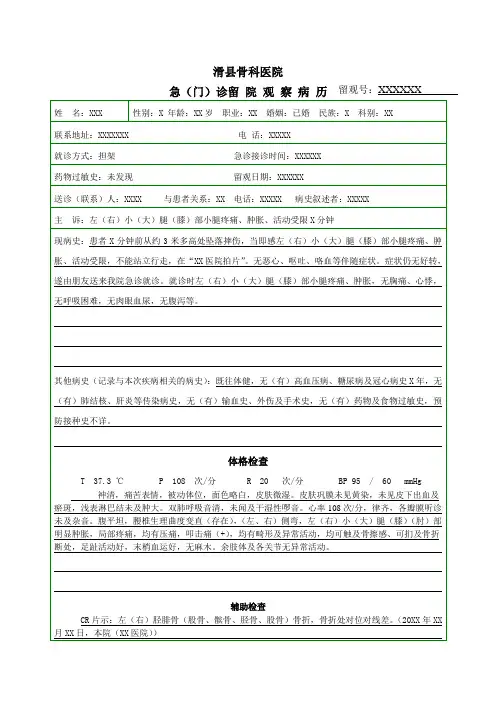 滑县骨科医院
急（门）诊留 院 观 察 病 历 留观号：XXXXXX
姓 名：XXX 性别：X 年龄：XX 岁 职业：XX 婚姻：已婚 民族：X 科别：XX
联系地址：XXXXXXX 电 话：XXXXX
就诊方式：担架 急诊接诊时间：XXXXXX
药物过敏史：未发现 留观日期：XXXXXX
送诊（联系）人：XXXX 与患者关系：XX 电话：XXXXX 病史叙述者：XXXXX
主 诉：左（右）小（大）腿（膝）部小腿疼痛、肿胀、活动受限 X 分钟
现病史：患者 X 分钟前从约 3 米多高处坠落摔伤，当即感左（右）小（大）腿（膝）部小腿疼痛、肿
胀、活动受限，不能站立行走，在“XX 医院拍片”。无恶心、呕吐、咯血等伴随症状。症状仍无好转，
遂由朋友送来我院急诊就诊。就诊时左（右）小（大）腿（膝）部小腿疼痛、肿胀，无胸痛、心悸，
无呼吸困难，无肉眼血尿，无腹泻等。
其他病史（记录与本次疾病相关的病史）：既往体健，无（有）高血压病、糖尿病及冠心病史 X 年，无
（有）肺结核、肝炎等传染病史，无（有）输血史、外伤及手术史，无（有）药物及食物过敏史，预
防接种史不详。
体格检查
T 37.3 ℃ P 108 次/分 R 20 次/分 BP 95 / 60 mmHg
神清，痛苦表情，被动体位，面色略白，皮肤微湿。皮肤巩膜未见黄染，未见皮下出血及
瘀斑，浅表淋巴结未及肿大。双肺呼吸音清，未闻及干湿性啰音。心率 108 次/分，律齐，各瓣膜听诊
未及杂音。腹平坦，腰椎生理曲度变直（存在），（左、右）侧弯，左（右）小（大）腿（膝）（肘）部
明显肿胀，局部疼痛，均有压痛，叩击痛（+），均有畸形及异常活动，均可触及骨擦感、可扪及骨折
断处，足趾活动好，末梢血运好，无麻木。余肢体及各关节无异常活动。
辅助检查
CR 片示：左（右）胫腓骨（股骨、髌骨、胫骨、股骨）骨折，骨折处对位对线差。（20XX 年 XX
月 XX 日，本院（XX 医院））